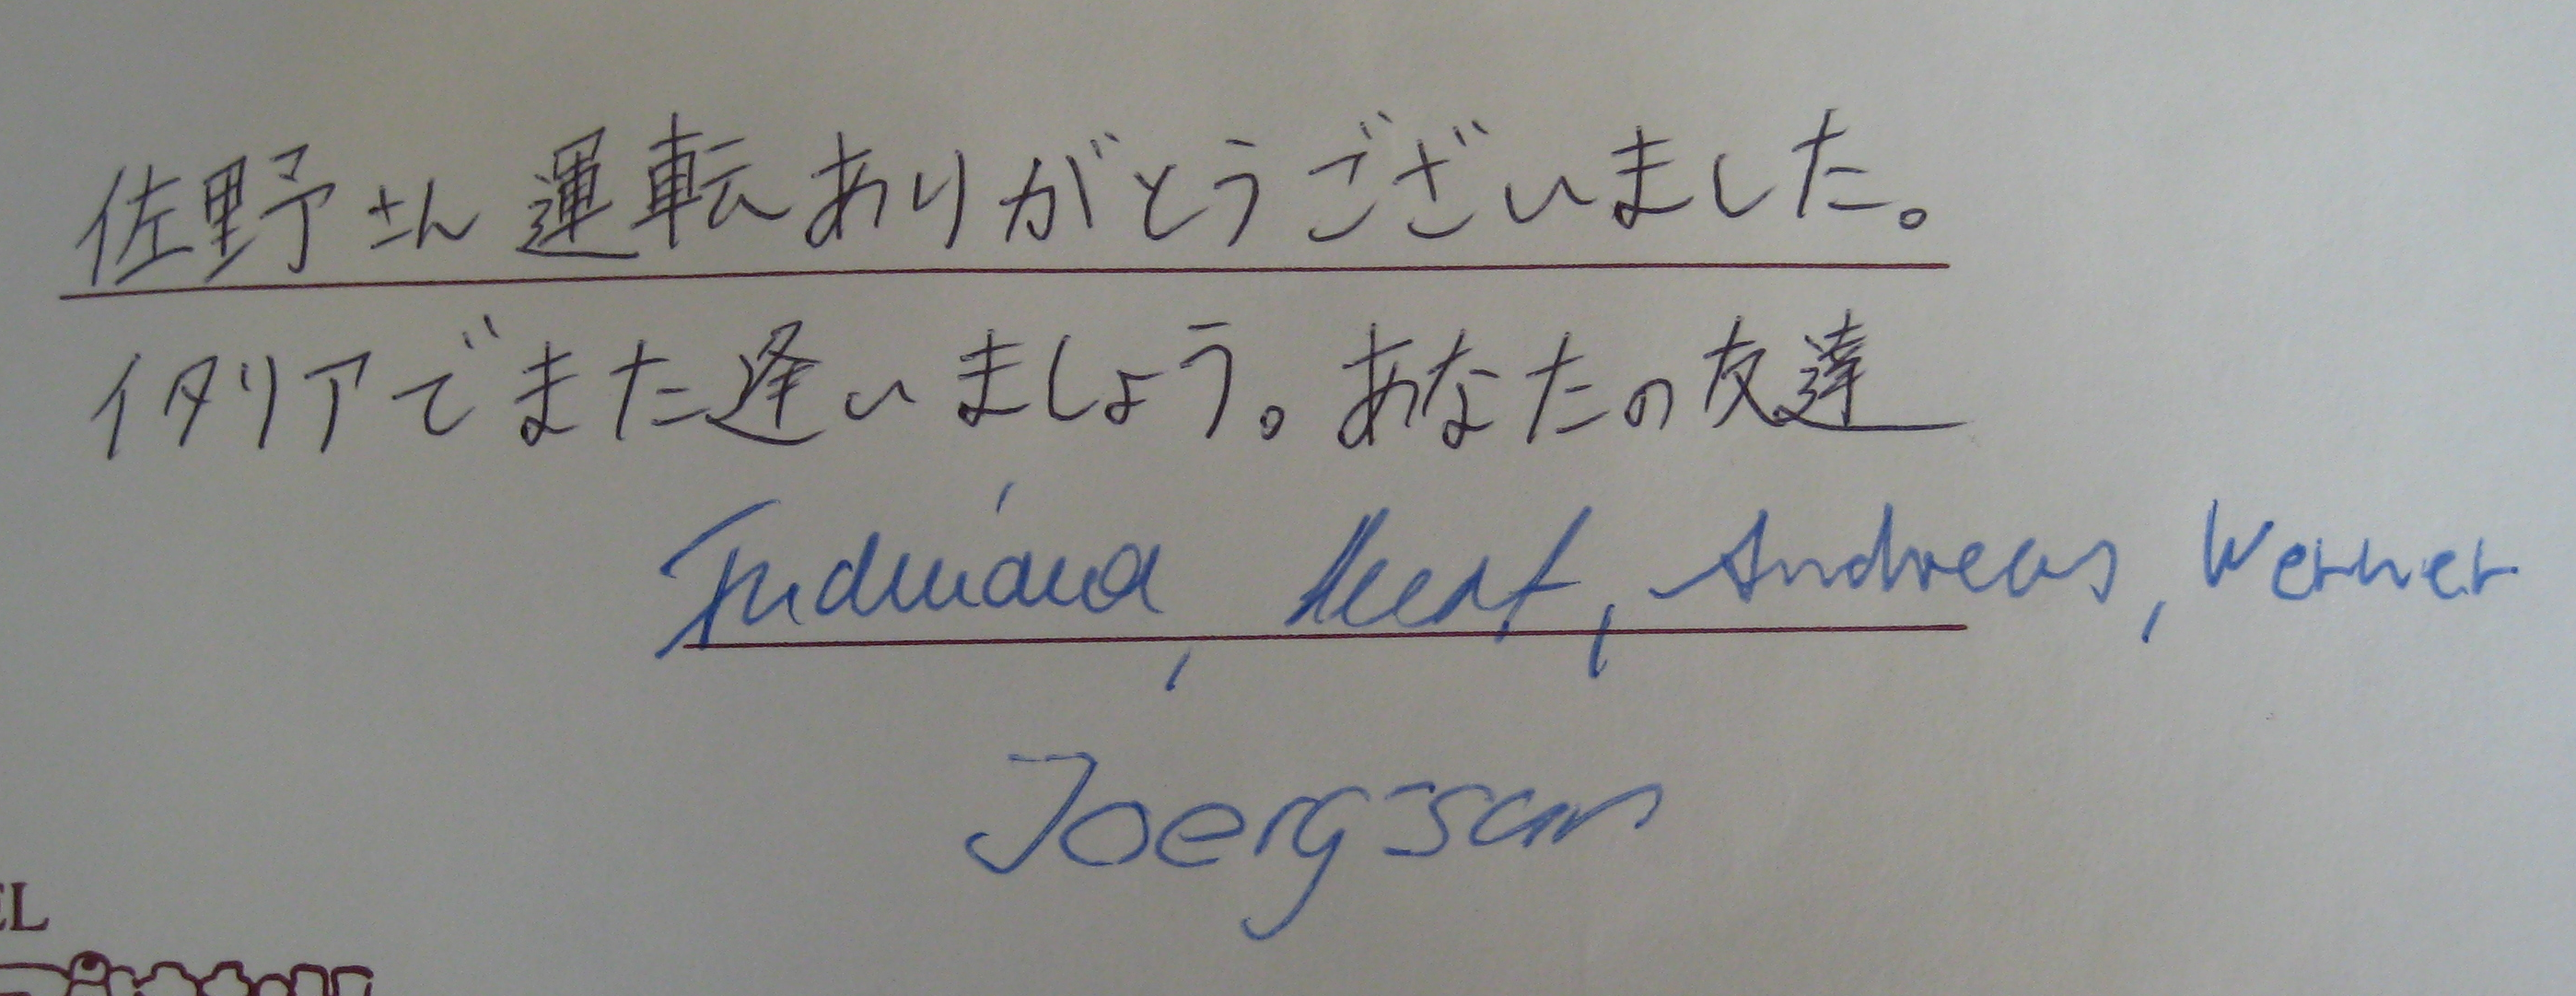 佐野さん運転ありがとうございました。
イタリアでまた逢いましょう。あなたの友達
Andreas, Werner
Joerg-san
EL